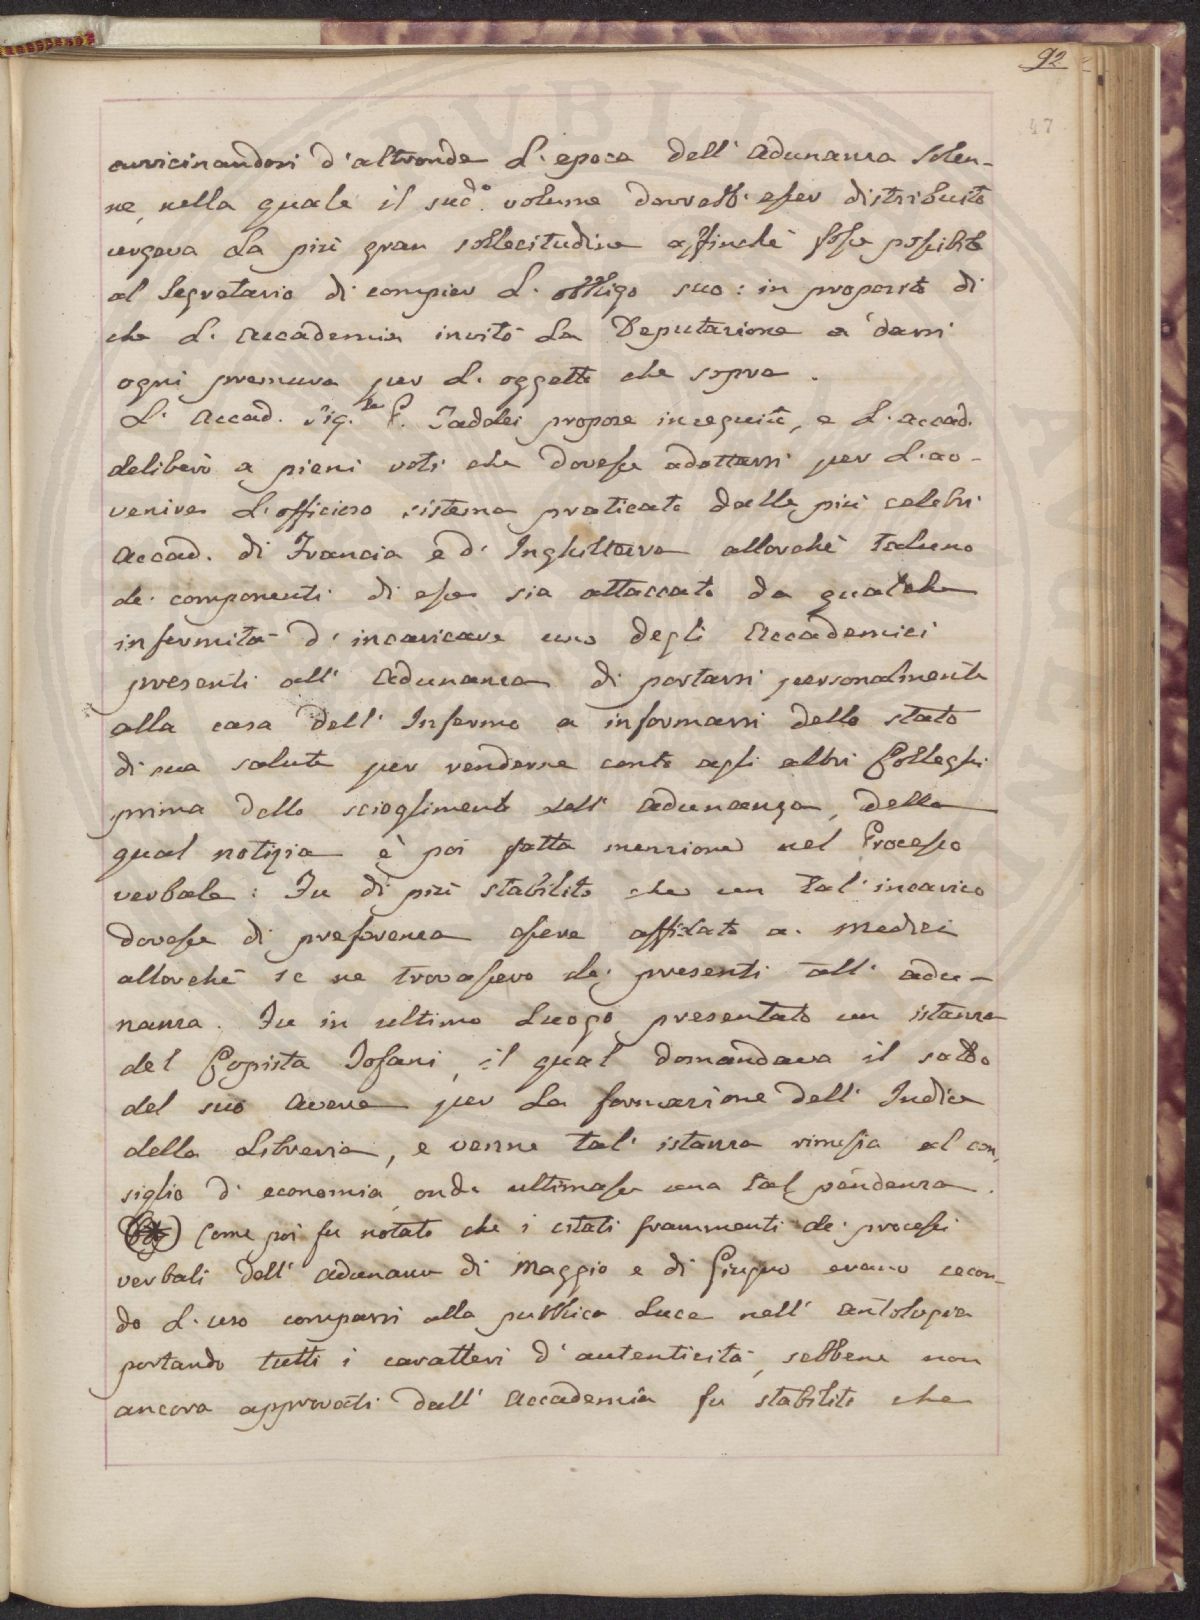 92
47
avvicinandosi d'altronde L'epoca dell'Adunanza Solen-
ne, nella quale il sudo. volume dovrebb'esser distribuito
urgeva La più gran sollecitudine affinchè fosse possibile
al Segretario di compier L'obbligo suo: in proposito di
che L'Accademia invitò La Deputazione a darsi
ogni premura per L'oggetto che sopra.
L'Accad. Sig.re P. Taddei propose in seguito, e L'accad.
deliberò a pieni voti che dovesse adottarsi per L'av-
venire L'officioso sistema praticato dalle più celebri
Accad. di Francia e d'Inghilterra allorchè taluno
de' componenti di esse sia attaccato da qualche
infermità d'incaricare uno degli Accademici
presenti all'Adunanza di portarsi personalmente
alla casa dell'Infermo a informarsi dello stato
di sua salute per renderne conto agli altri Colleghi
prima dello scioglimento dell'adunanza, della
qual notizia è poi fatta menzione nel Processo
verbale: Fu di più stabilito che un tal'incarico
dovesse di preferenza essere affidato a' Medici
allorchè se ne trovassero de' presenti all'adu-
nanza. Fu in ultimo Luogo presentato un istanza
del Copista Tofani, il qual domandava il saldo
del suo avere per La formazione dell'Indice
della Libreria, e venne tal'istanza rimessa al con,
siglio d'economia, onde ultimasse una tal pendenza.
Come poi fu notato che i citati frammenti de' processi
verbali dell'adunanze di Maggio e di Giugno erano secon-
do L'uso comparsi alla pubblica Luce nell'antologia
portando tutti i caratteri d'autenticità, sebbene non
ancora approvati dall'Accademia fu stabilito che